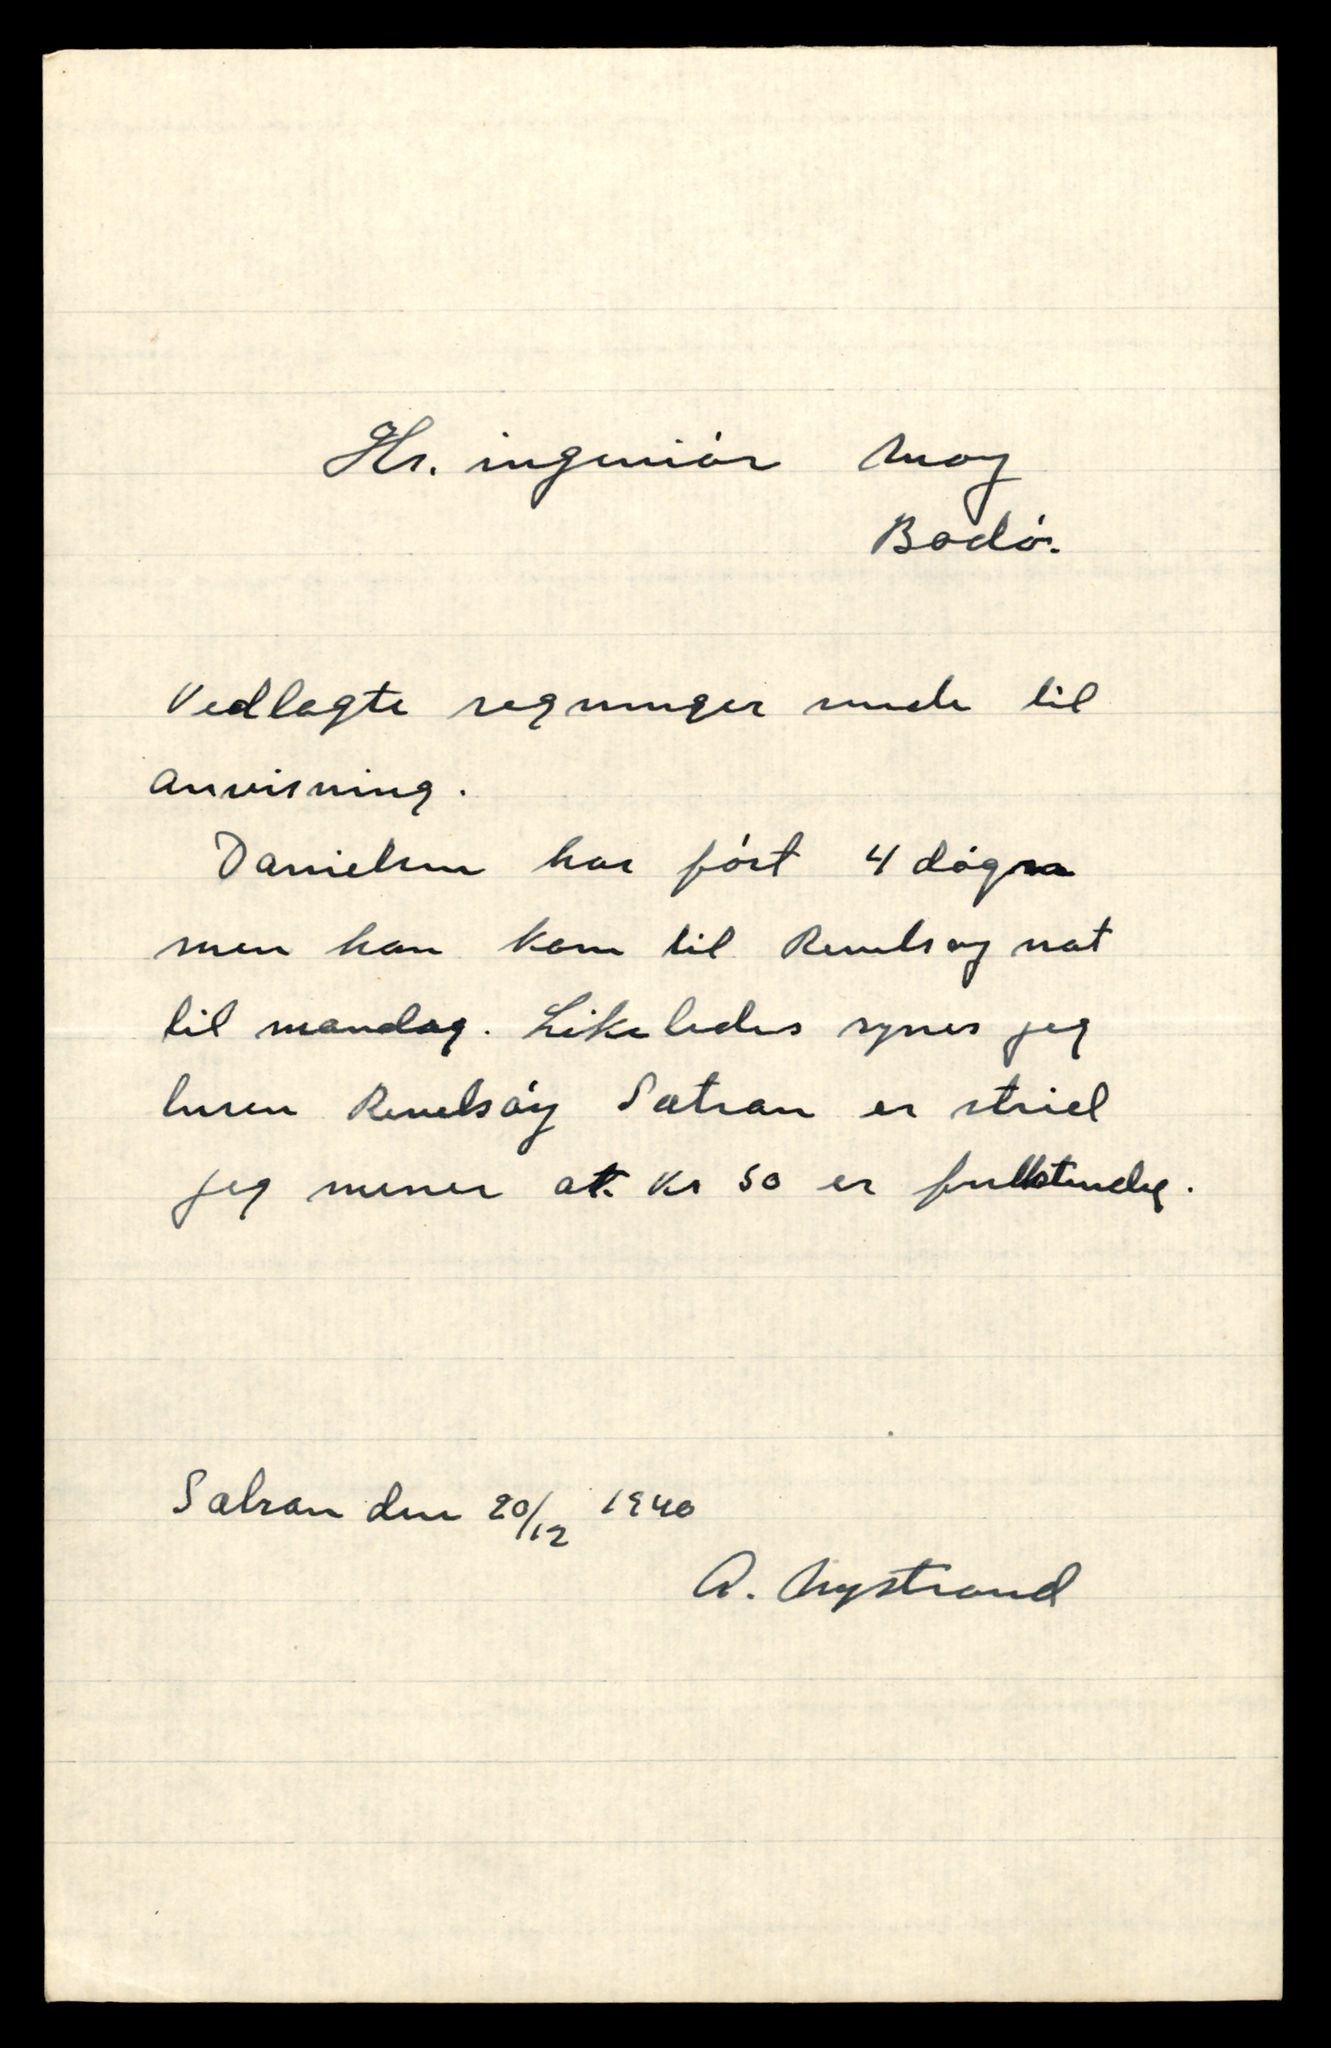 Hr. ingeniór Moy
Bodó.
Vedlagte regninger sende til
anvisning.
Danielsen har fórt 4 dógn
men han kom til Renelsoy nat
til mandag. Likeledes synes jeg
turen Renelsóy Satran er striel
jeg mener at Kr 50 er fullstendig.
Satran den 20/12 1940
A. Nystrand